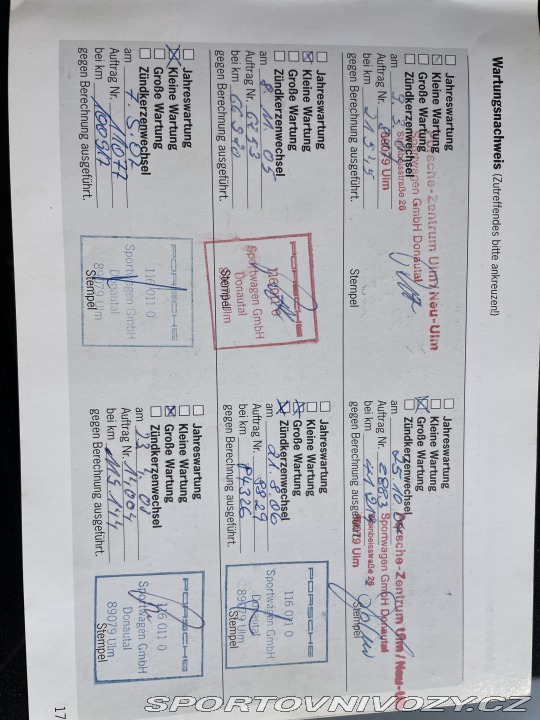 Wartungsnachweis (Zutreffendes bitte ankreuzen!)
Jahreswartung
Kleine Wartung
Große Wartung
Zündkerzenwechsel
am
Auftrag Nr.
bei km 21545
gegen Berechnung ausgeführt.
Stempel
Porsche-Zentrum Ulm/Neu-Ulm
Sportwagen GmbH Donautal
Steinbeisstraße 26
89079 Ulm
Jahreswartung
Kleine Wartung
Große Wartung
Zündkerzenwechsel
am 25.10.04
Auftrag Nr. 2883
bei km
gegen Berechnung ausgeführt.
Stempel
Porsche-Zentrum Ulm / Neu-Ulm
Sportwagen GmbH Donautal
Steinbeisstraße 26
89079 Ulm
Jahreswartung
Kleine Wartung
Große Wartung
Zündkerzenwechsel
am 8.11.05
Auftrag Nr. 6753
bei km 66930
gegen Berechnung ausgeführt.
Stempel
PORSCHE
116 011 0
Sportwagen GmbH
Donautal
89079 Ulm
Jahreswartung
Kleine Wartung
Große Wartung
Zündkerzenwechsel
am 21.8.06
Auftrag Nr. 9829
bei km 84326
gegen Berechnung ausgeführt.
Stempel
PORSCHE
116 011 0
Sportwagen GmbH
Donautal
89079 Ulm
Jahreswartung
Kleine Wartung
Große Wartung
Zündkerzenwechsel
am 7.5.07
Auftrag Nr. 11077
bei km
gegen Berechnung ausgeführt.
Stempel
PORSCHE
116 011 0
Sportwagen GmbH
Donautal
89079 Ulm
Jahreswartung
Kleine Wartung
Große Wartung
Zündkerzenwechsel
am
Auftrag Nr. 14004
bei km 119144
gegen Berechnung ausgeführt.
Stempel
PORSCHE
116 011 0
Sportwagen GmbH
Donautal
89079 Ulm
17
SPORTOVNIVOZY.CZ